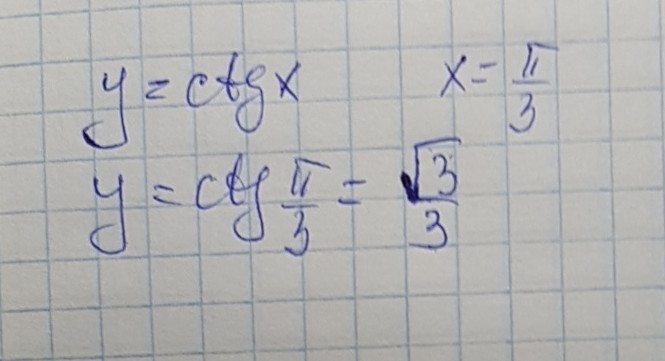 y = ctg x x = π/3
y = ctg π/3 = √3/3